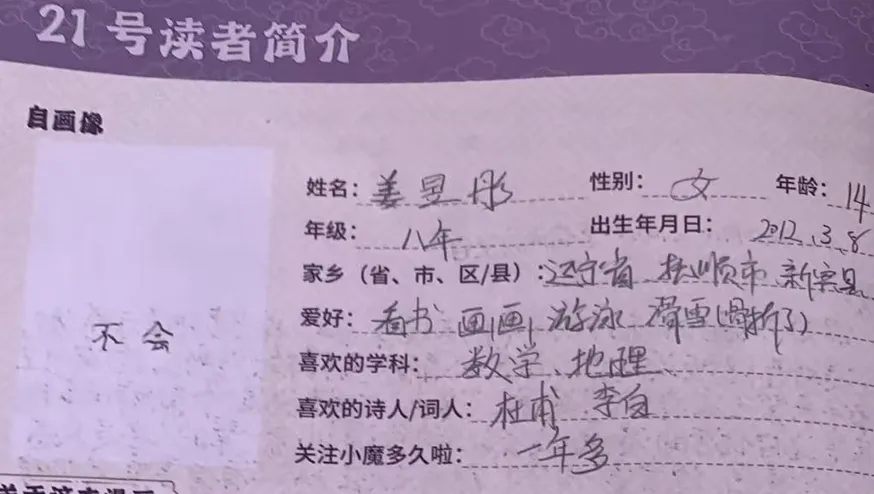 21号读者简介
自画像
不会
姓名：姜昱彤 性别：女 年龄：14
年级：八年 出生年月日：2012.3.8
家乡（省、市、区/县）：辽宁省 抚顺市 新宾县
爱好：看书 画画 游泳 滑雪（骨折了）
喜欢的学科：数学、地理
喜欢的诗人/词人：杜甫 李白
关注小魔多久啦：一年多